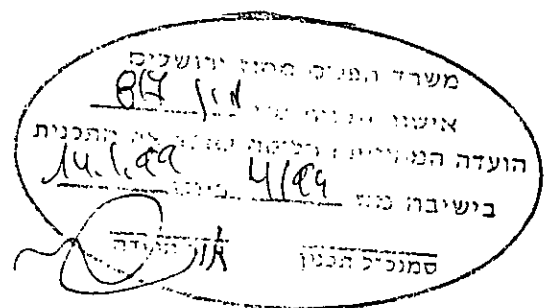 משרד הפנים מחוז ירושלים
אישור תכנית מס'
הועדה המחוזית החליטה לאשר את התכנית
בישיבה מס' 4/99 ביום 14.1.99
סמנכ"ל תכנון יו"ר הועדה